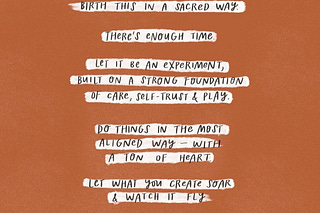 BIRTH THIS IN A SACRED WAY
THERE'S ENOUGH TIME
LET IT BE AN EXPERIMENT,
BUILT ON A STRONG FOUNDATION
OF CARE, SELF-TRUST & PLAY.
DO THINGS IN THE MOST
ALIGNED WAY — WITH
A TON OF HEART
LET WHAT YOU CREATE SOAR
& WATCH IT FLY